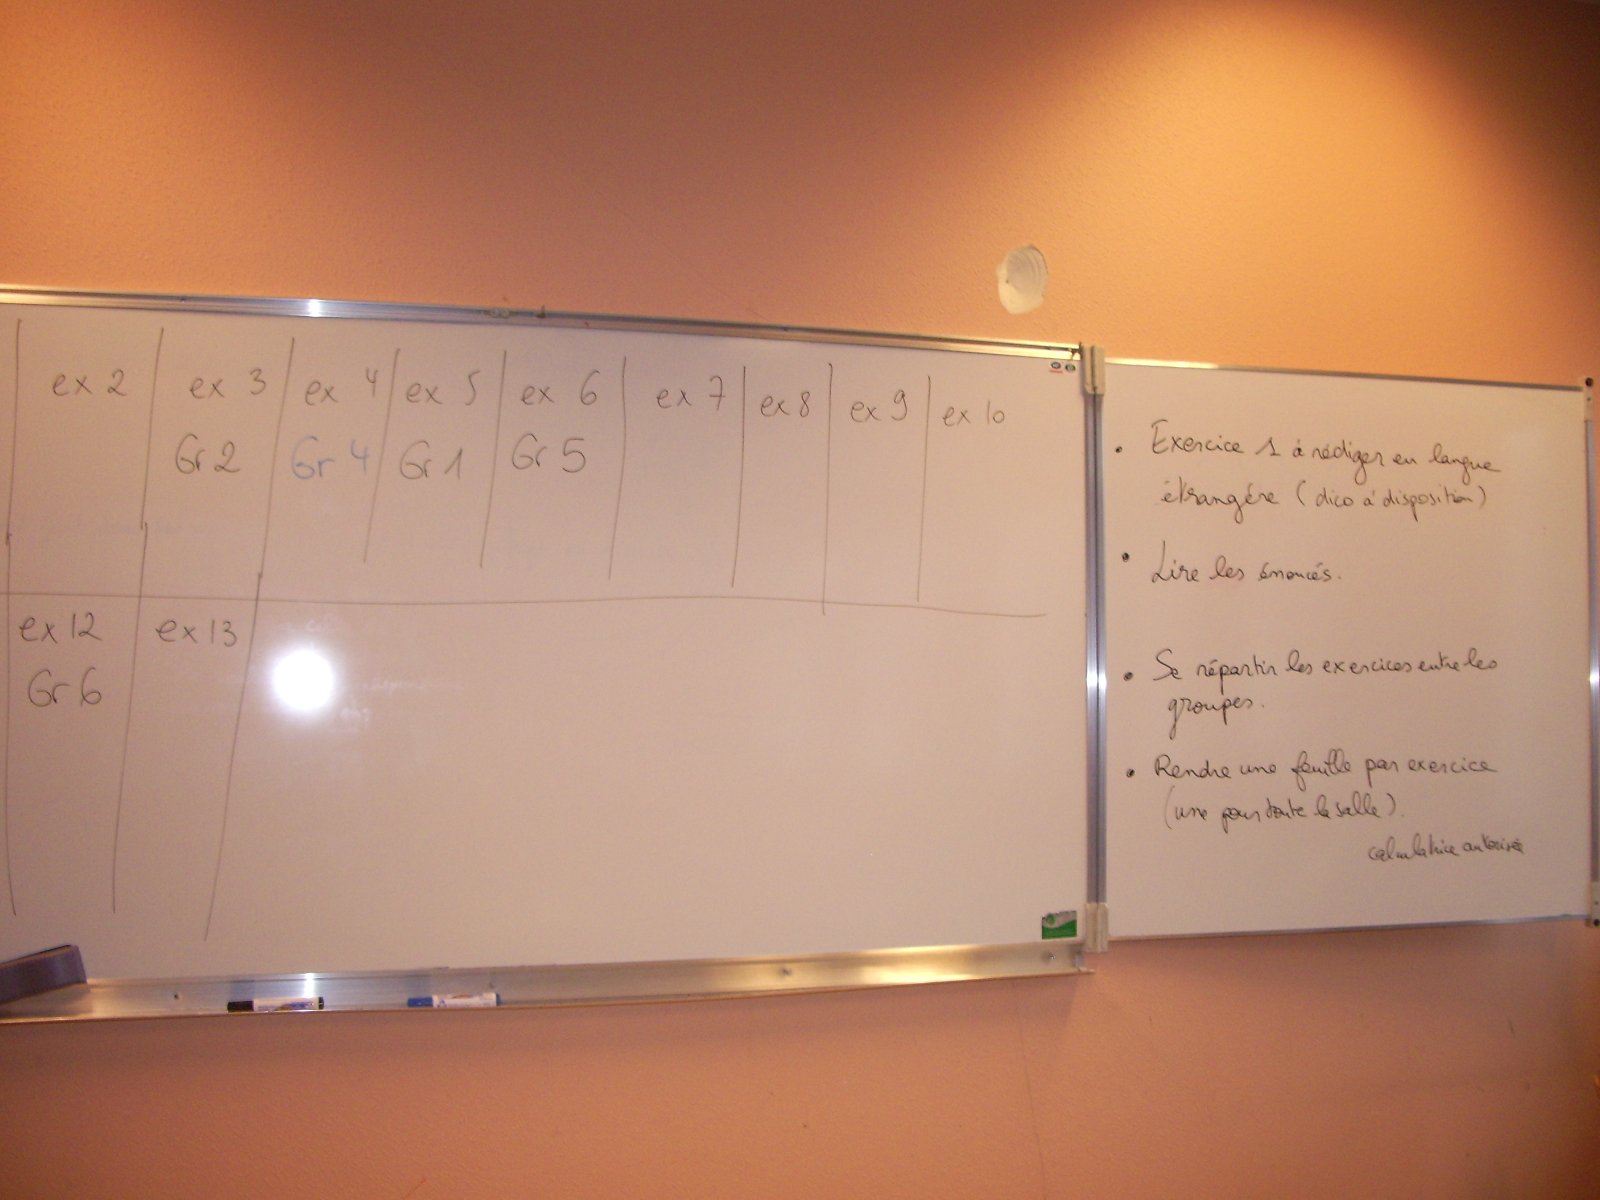 ex 2 ex 3 ex 4 ex 5 ex 6 ex 7 ex 8 ex 9 ex 10
Gr 2 Gr 4 Gr 1 Gr 5
ex 12 ex 13
Gr 6
• Exercice 1 à rédiger en langue
étrangère (dico à disposition)
• Lire les énoncés.
• Se répartir les exercices entre les
groupes.
• Rendre une feuille par exercice
(une pour toute la salle).
calculatrice autorisée